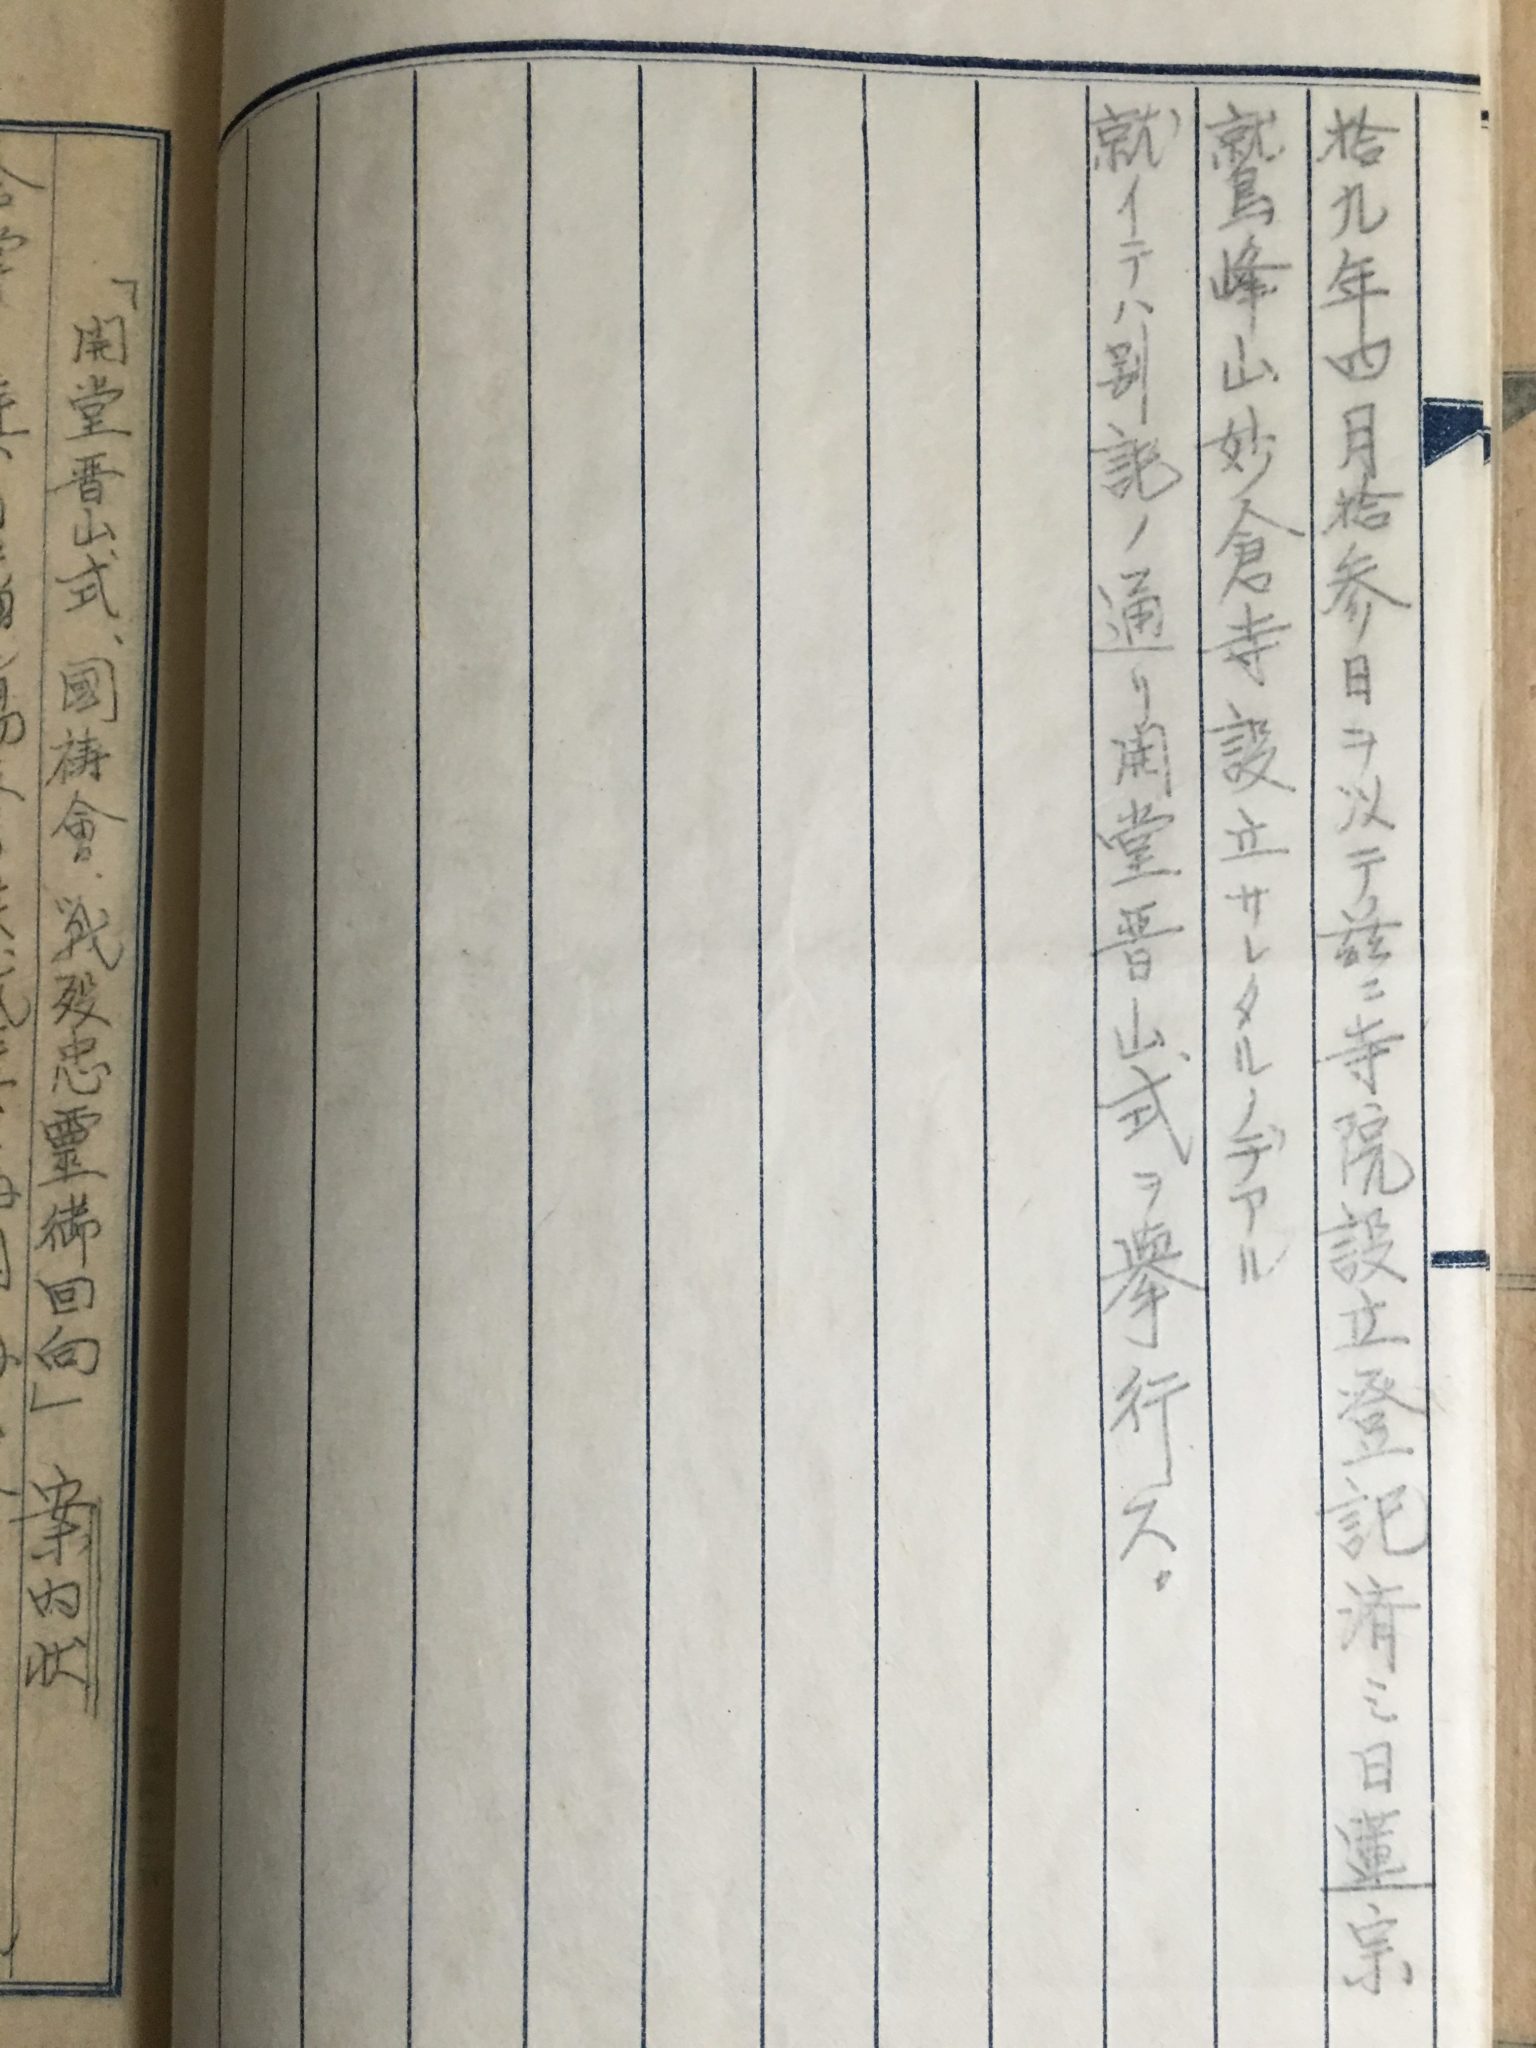 拾九年四月拾参日ヲ以テ茲ニ寺院設立登記済ミ日蓮宗
鷲峰山妙倉寺設立サレタルノデアル
就イテハ別記ノ通リ開堂晋山式ヲ挙行ス。
「開堂晋山式、國祷會、戦歿忠霊御回向」案内状